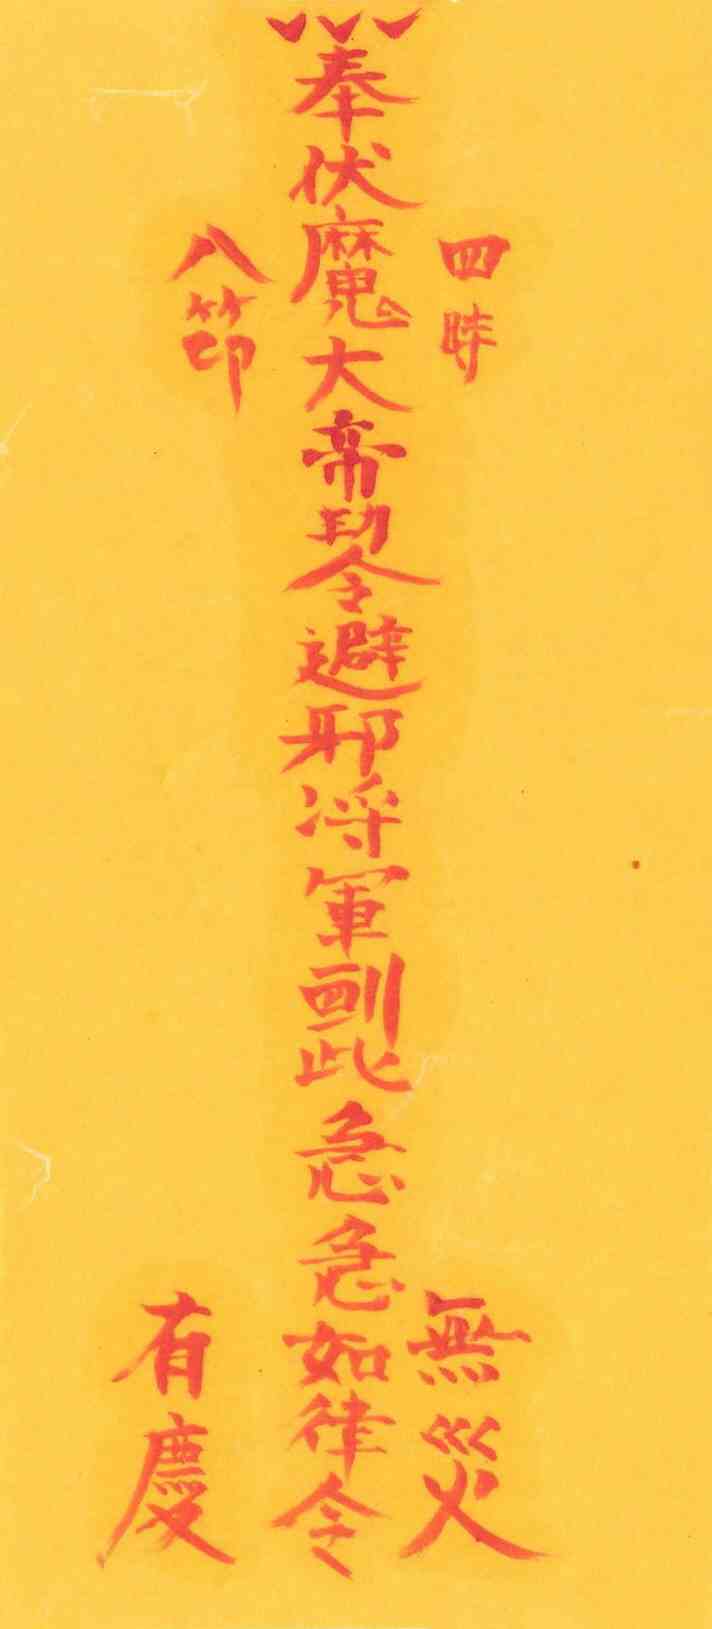 四時
無災
奉伏魔大帝功令避邪将軍到此急急如律令
八節
有慶